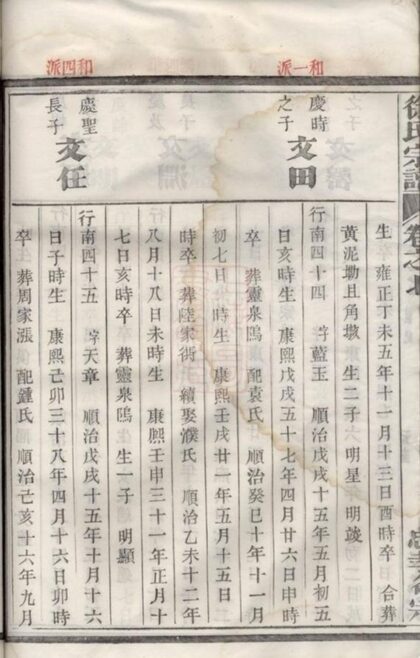 徐氏宗譜
卷之
和一派
慶時之子
文田
生 雍正丁未五年十一月十三日酉時卒 合葬
黃泥坳且角墩 生二子 明星 明竣
行南四十四 字藍玉 順治戊戌十五年五月初五
日亥時生 康熙戊戌五十七年四月廿六日申時
卒 葬靈泉隝 配袁氏 順治癸巳十年十一月
初七日 時生 康熙壬戌廿一年五月十五日
時卒 葬陸家衖 續娶濮氏 順治乙未十二年
八月十八日未時生 康熙壬申三十一年正月十
七日亥時卒 葬靈泉隝 生一子 明顯
和四派
慶聖長子
文任
行南四十五 字天章 順治戊戌十五年十月十六
日子時生 康熙己卯三十八年四月十六日卯時
卒 葬周家漲 配鍾氏 順治己亥十六年九月